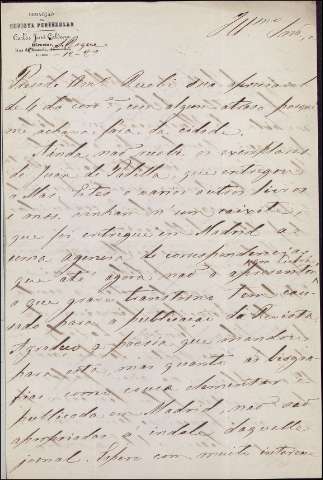 REDACÇÃO
DA
REVISTA PENINSULAR
Director,
Illmo Snr.
Prezado Recebi sua apreciavel
de 4 do corre. com algum atraso porque
me achava fora da cidade.
Ainda não recebi os exemplares
de Juan de Padilla que entregou
a Mas. Estes e varios outros livros
vinham n'um caixote
que foi entregue em Madrid a
uma agencia de correspondencia
que até agora não a apresentou
o que grave transtorno tem cau-
sado para a publicação da Revista
Agradeço a poesia que mandou
para esta, mas quanto as biogra-
fias, como cousa elementar e
publicada em Madrid, não são
apropriadas á indole daquelle
jornal. Espero com muito interesse